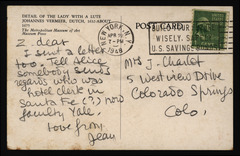 DETAIL OF THE LADY WITH A LUTE
JOHANNES VERMEER, DUTCH, 1632-
1675
The Metropolitan Museum of Art
POSTCARD
NEW YORK, N.Y.
APR
1948
BUILD YOUR FUTURE
WISELY, SAFELY
U.S. SAVINGS BONDS
Z. dear
I sent a letter
too. Tell Alice
somebody sends
regards who was
hotel clerk in
Santa Fe (?) now
faculty Yale.
love from
Jean
Mrs J. Charlot
5 West view Drive
Colorado Springs
Colo.